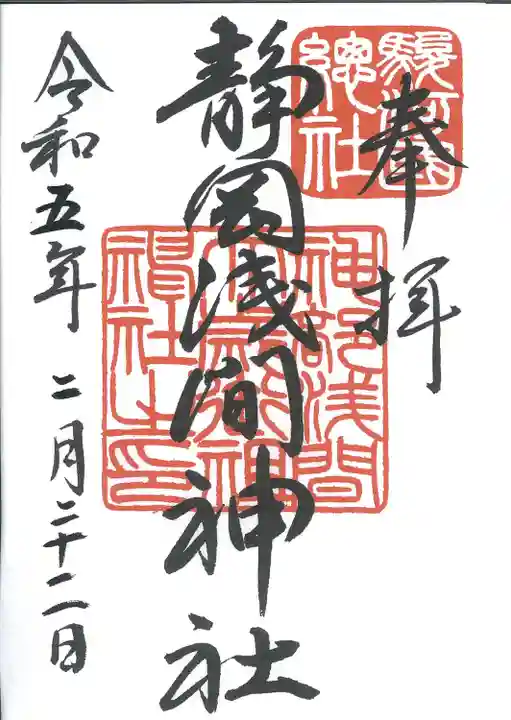 奉拝
駿河國
總社
静岡浅間神社
神部浅間
大歳御祖
神社之印
令和五年二月二十二日